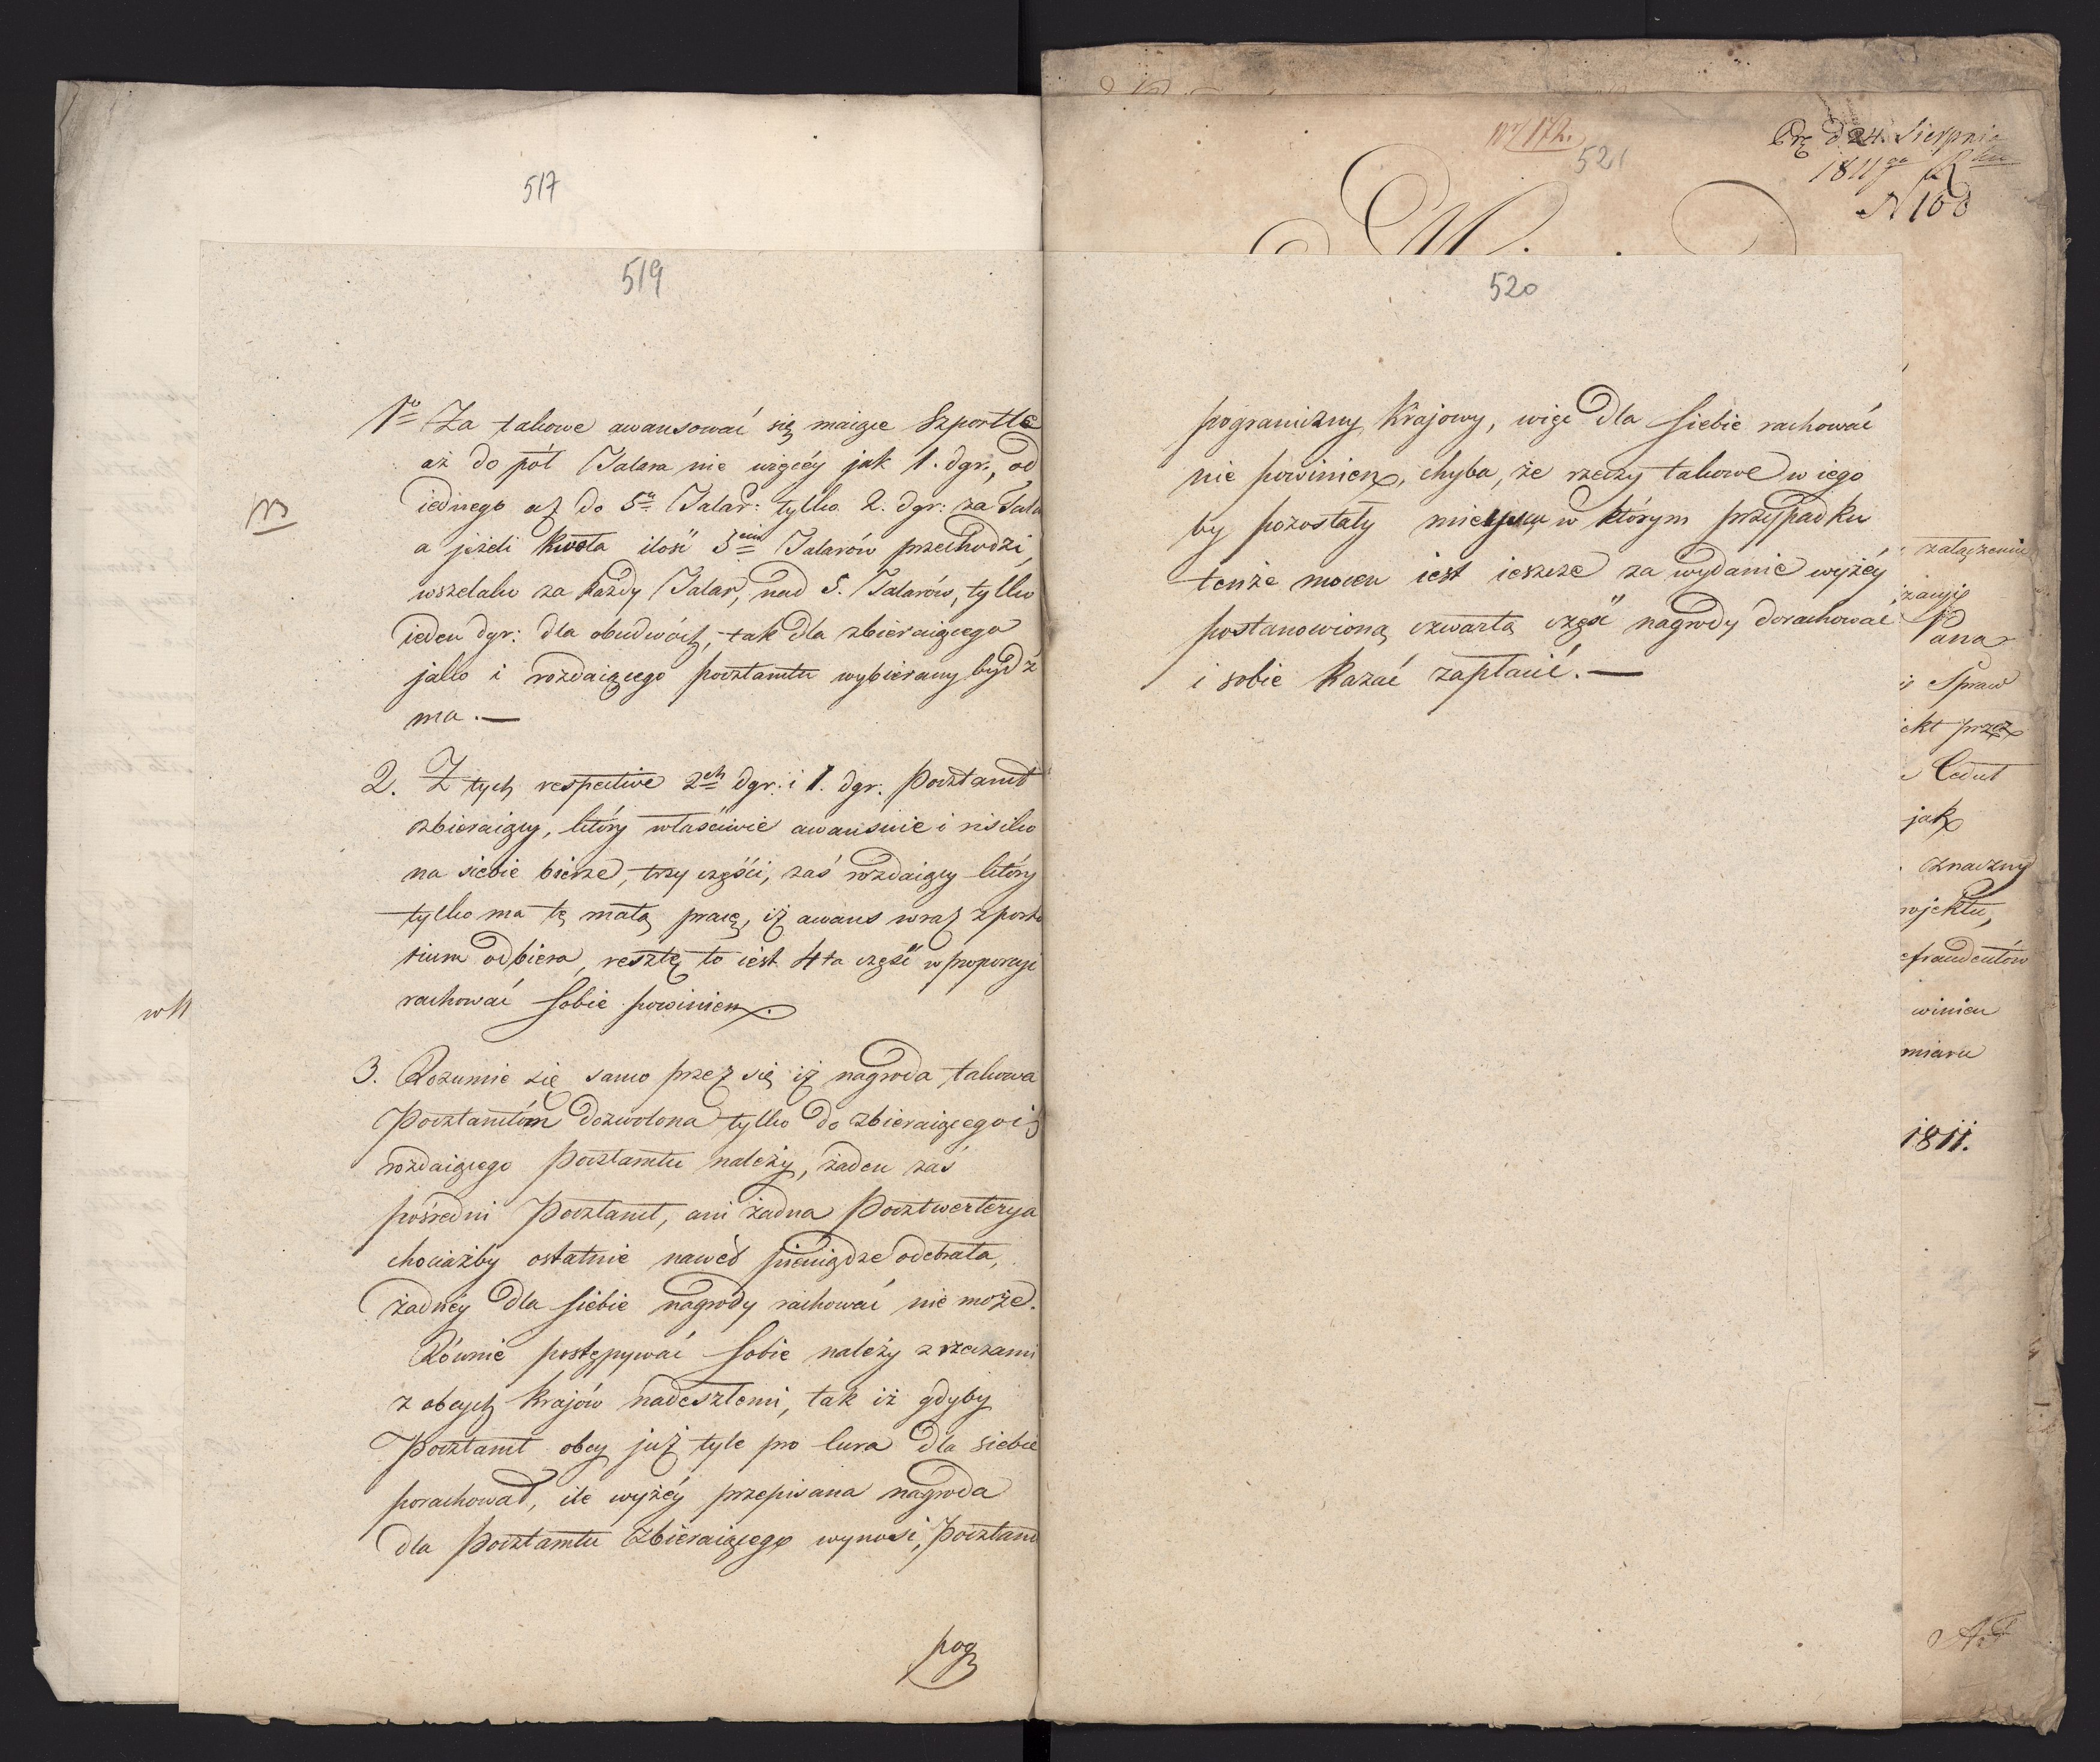 517
519
1mo Za takowe awansować się maiące Szportle
aż do pół Talara nie więcéy jak 1. dgr., od
iednego aż do 5u Talar: tylko 2. dgr: za Tala
NB
a jeżeli kwota ilość 5ciu Talarów przechodzi,
wszelako za każdy Talar, nad 5. Talarów, tylko
ieden dgr: dla obudwóch, tak dla zbieraiącego
jako i rozdaiącego pocztamtu wybierany bydź
ma. —
2. Z tych respective 2ch dgr. i 1. dgr. Pocztamt
zbieraiący, który właściwie awansuie i risiko
na siebie bierze, trzy części, zaś rozdaiący który
tylko ma tę małą pracę, iż awans wraz z porto
rium odbiera, resztę to iest 4ta część w proporcyi
rachować sobie powinien.
3. Rozumie się samo przez się iż nagroda takowa
Pocztamtóm dozwolona tylko do zbieraiącego i
rozdaiącego Pocztamtu należy, żaden zaś
pośredni Pocztamt, ani żadna Pocztwerterya
chociażby ostatnie nawet pieniądze odebrała,
żadnéy dla siebie nagrody rachować nie może.
Równie postępywać sobie należy z rzeczami
z obcych krajów nadeszłemi, tak iż gdyby
Pocztamt obcy już tyle pro cura dla siebie
porachował, ile wyżéy przepisana nagroda
dla Pocztamtu zbieraiącego wynosi, Pocztamt
pog
w
Prę d 24. Sierpnia
1811go Rku
N 168
Nr 172.
521
W.
520
pograniczny Krajowy, więc dla siebie rachować
nie powinien, chyba, że rzeczy takowe w iego
by pozostały mieyscu w którym przypadku
tenże mocen iest ieszcze za wydanie wyżéy
postanowioną czwartą część nagrody dorachować
i sobie kazać zapłacić. —
załączeniu
Pana
Spraw
ekt przez
Cedut
jak
znaczny
rojektu,
efraudentów
winien
miaru
1811.